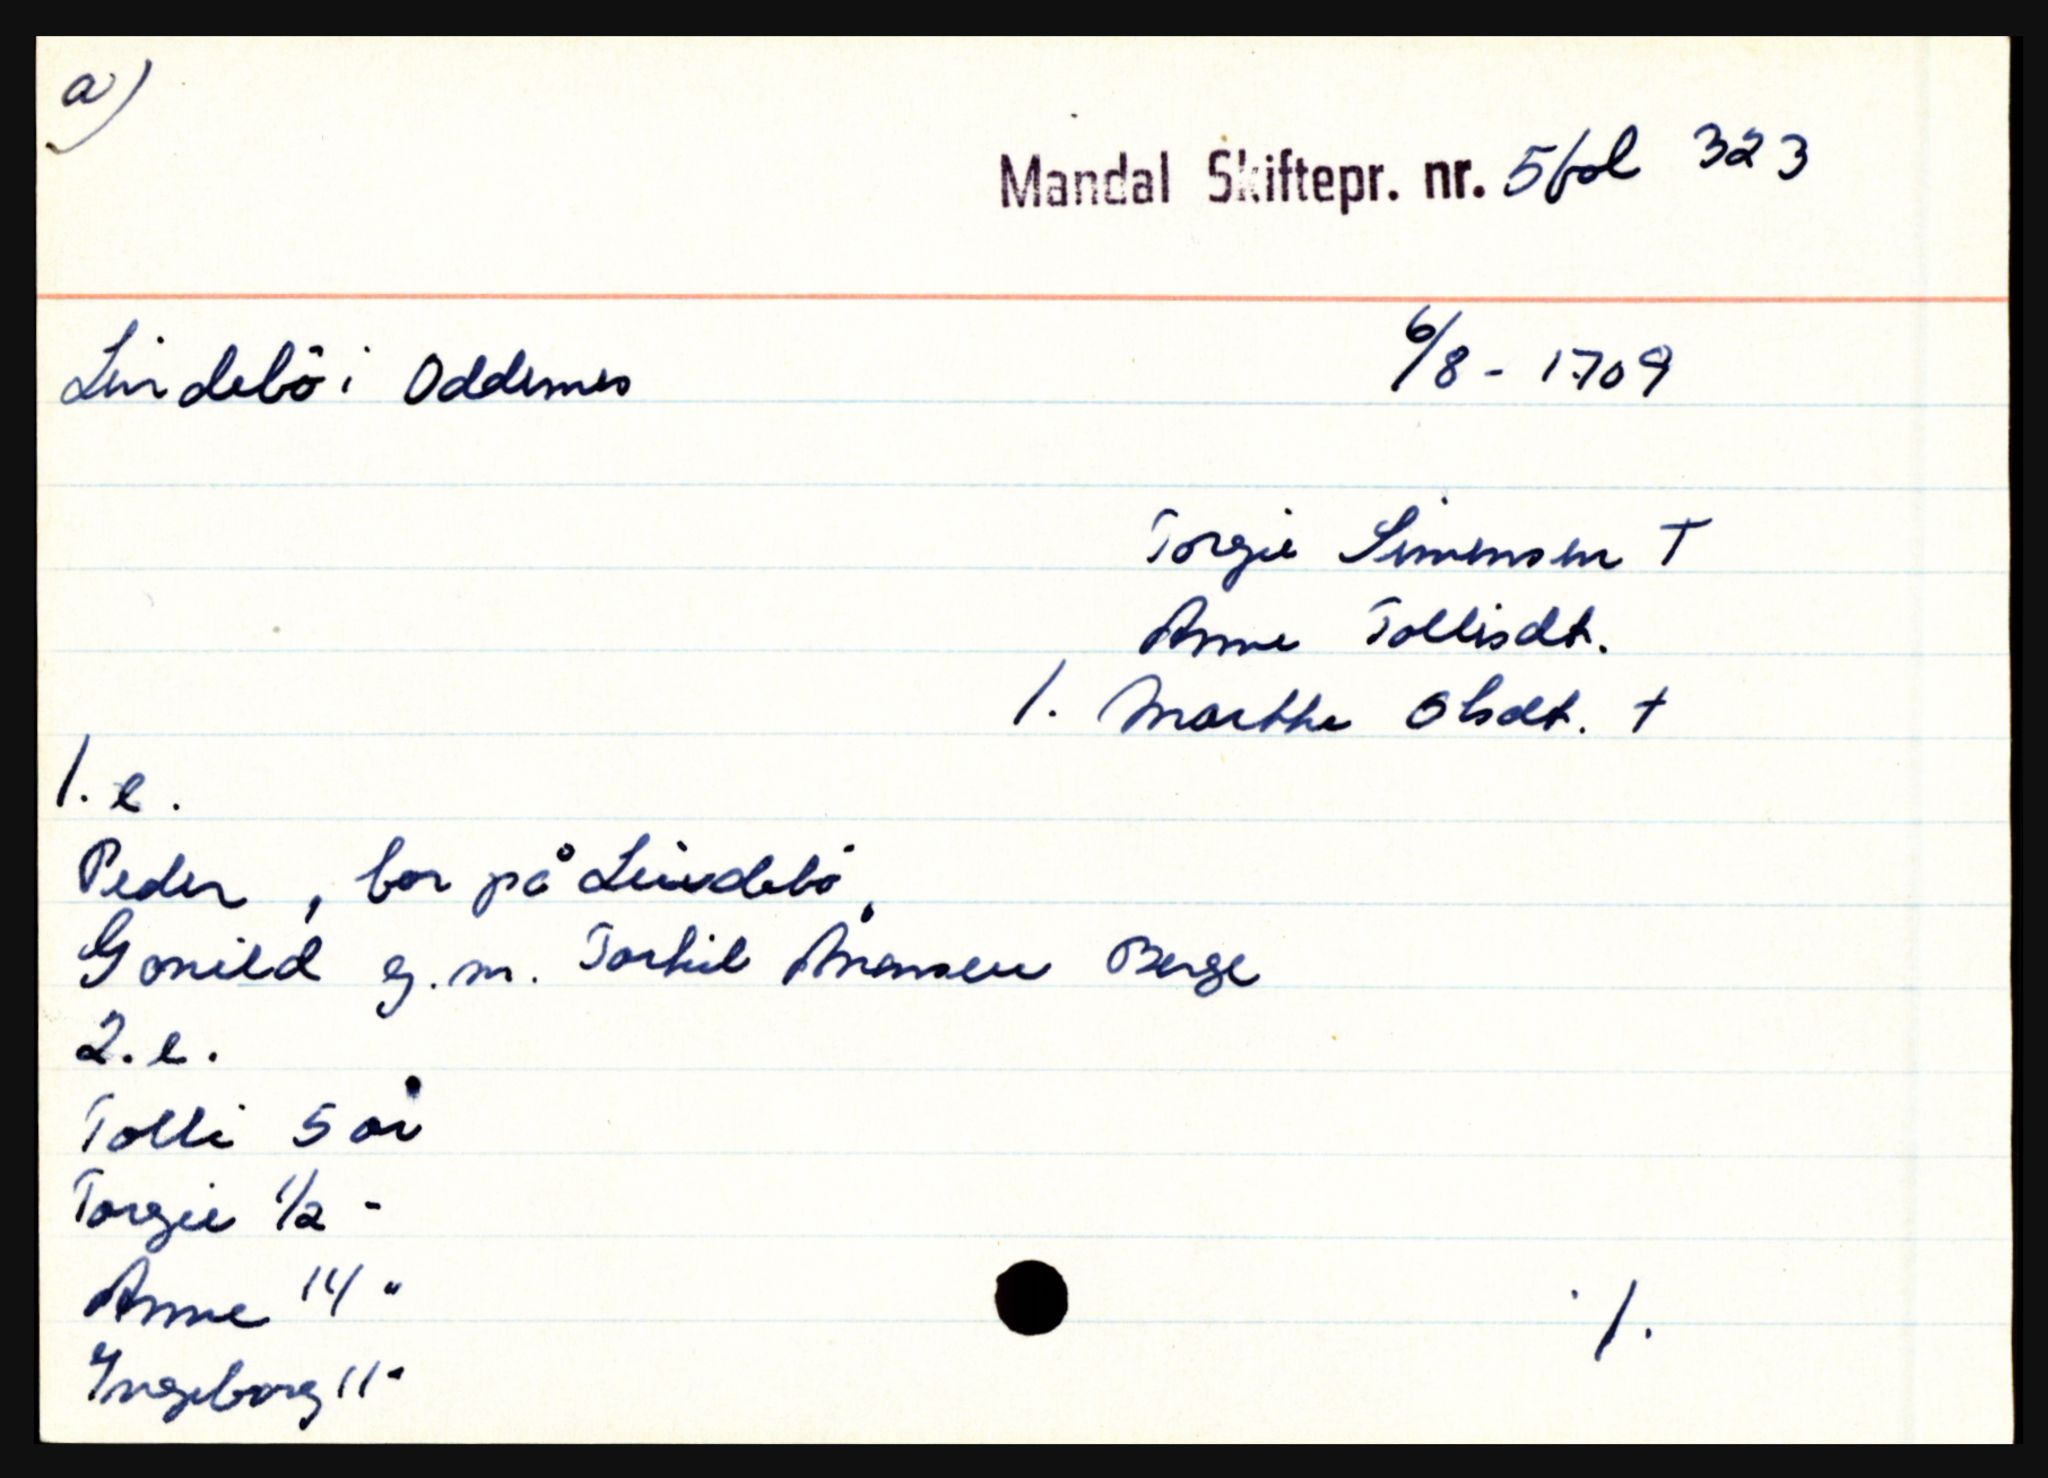 a)
Mandal Skiftepr. nr. 5 fol 323
Lindebö i Oddernes 6/8 - 1709
Torgie Simensen †
Anne Tollisdt.
1. Marthe Olsdt. †
1. e.
Peder, bor på Lindebö,
Gonild g.m. Torkil Ånensen Berge
2. e.
Tolli 5 år
Torgie 1/2 -
Anne 14 "
Ingeborg 11 "
1.